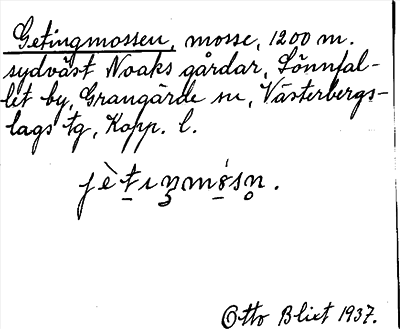 Getingmossen, mosse, 1200 m.
sydväst Noaks gårdar, Sönnfal-
let by, Grangärde sn, Västerbergs-
lags tg, Kopp. l.
jètıŋmósn.
Otto Blixt 1937.